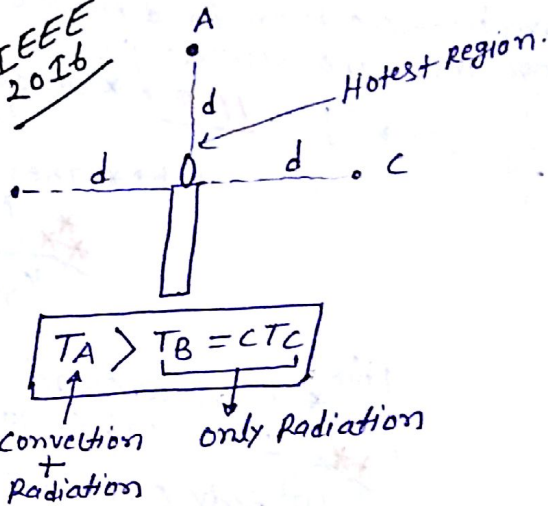 IEEE
2016
A
d
Hotest Region.
d
d
C
TA > TB = CTC
Convection
+
Radiation
only Radiation